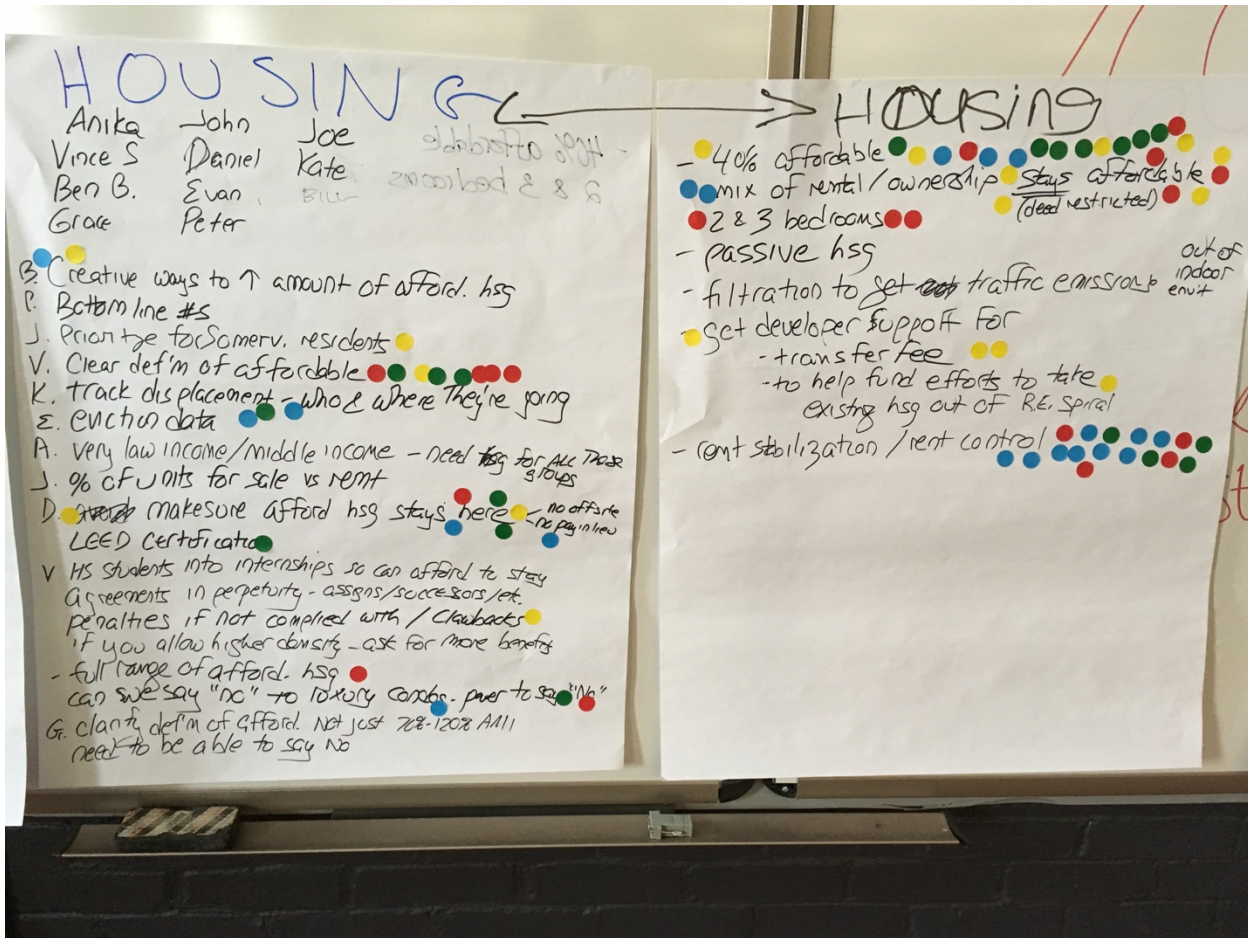 HOUSING
Anika John Joe
Vince S Daniel Kate
Ben B. Evan, Bill
Grace Peter
- 40% affordable
2 & 3 bedrooms
B. Creative ways to ↑ amount of afford. hsg
P. Bottom line #s
J. Prioritize for Somerv. residents
V. Clear def'n of affordable
K. track displacement - who & where they're going
E. eviction data
A. very low income/middle income - need hsg for ALL Those groups
J. % of units for sale vs rent
D. make sure afford hsg stays here - no offsite
- no pay in lieu
LEED Certification
V HS students into internships so can afford to stay
Agreements in perpetuity - assigns/successors/etc.
penalties if not complied with / Clawbacks
if you allow higher density - ask for more benefits
- full range of afford. hsg
can we say "no" to luxury condos - power to say "No"
G. clarify def'n of afford. Not just 70%-120% AMI
need to be able to say No
HOUSing
- 40% affordable
mix of rental/ownership stays affordable
(deed restricted)
2 & 3 bedrooms
- passive hsg
- filtration to get traffic emissions out of indoor envir
- get developer support for
- transfer fee
- to help fund efforts to take
existing hsg out of R.E. Spiral
- rent stabilization / rent control